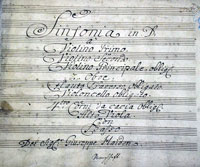 Sinfonia in D
a
Violino Primo
Violino Secondo
Violino Principale oblig:
2 Oboe
Flauto Traverso obligato
Violoncello obligato
Corni
Viola
con
Basso
Del Sigr. Giuseppe Haiden